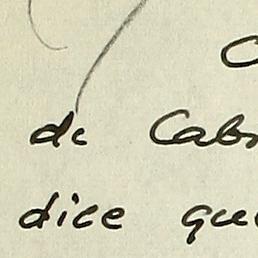 de Cabr
dice que